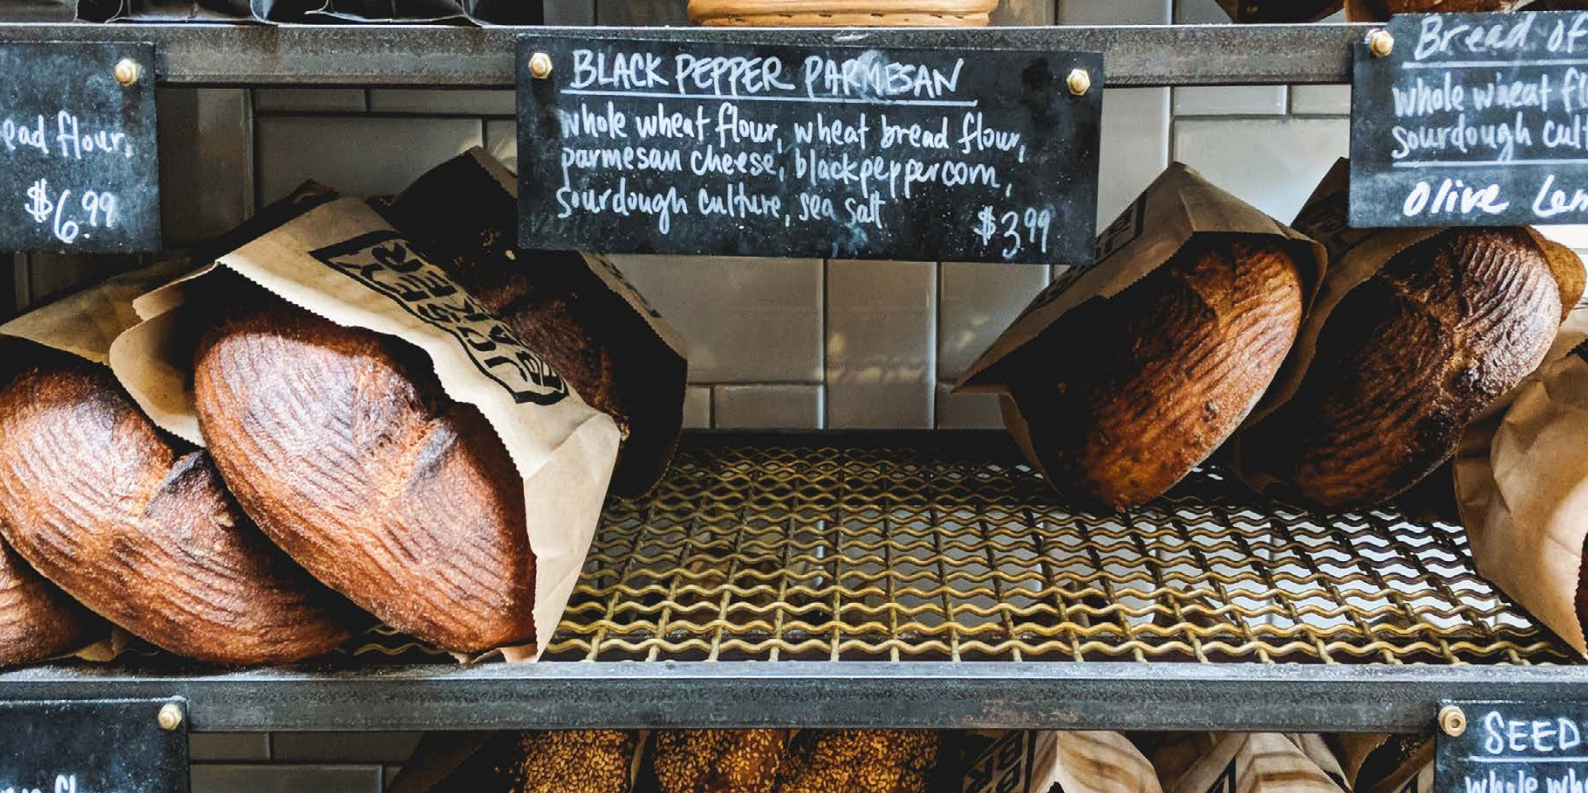 flour,
$6.99
BLACK PEPPER PARMESAN
whole wheat flour, wheat bread flour,
parmesan cheese, black peppercorn,
sourdough culture, sea salt
$3.99
Bread of
whole wheat
sourdough
Olive
SEED
whole